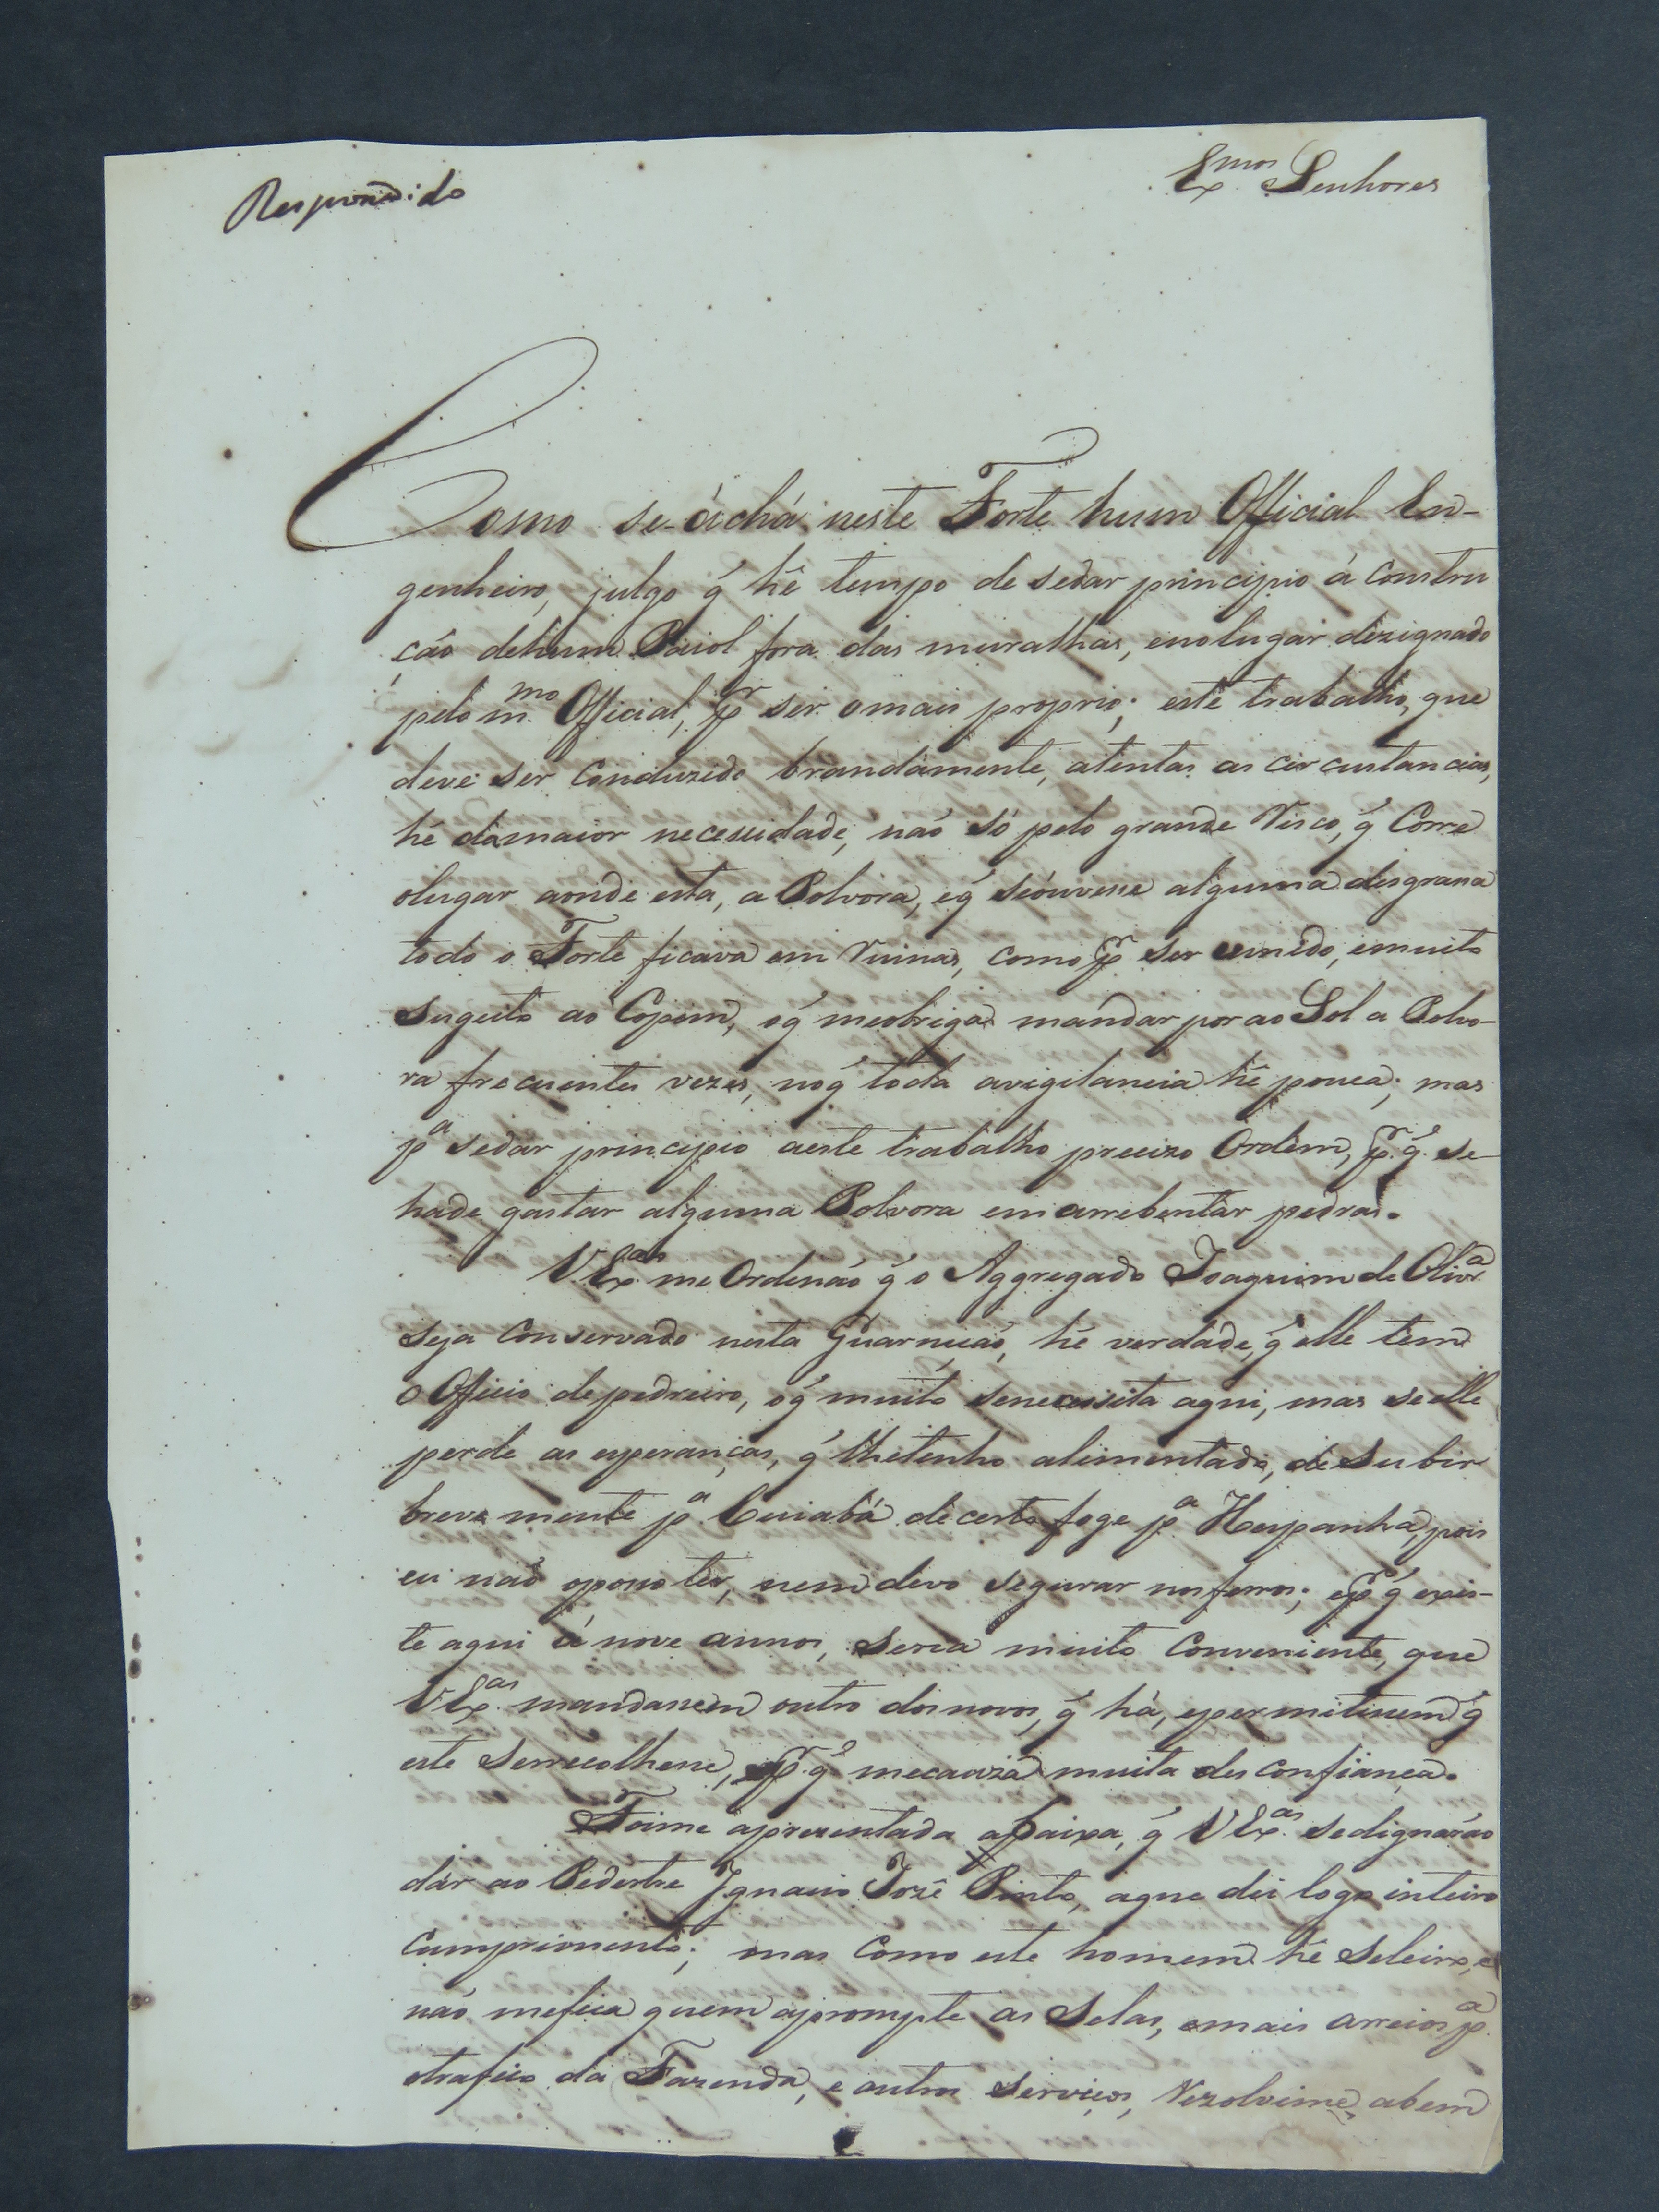 Respondido
Exmos Senhores
Como se-áchá neste Forte hum Official En-
genheiro, julgo q̃ hê tempo de sedar principio á Constru
ção dehum Paiol fora das muralhas, enolugar dezignado
pelo m.mo Official, pr ser omais proprio; este trabalho, que
deve ser Conduzido brandamente, atentas as circustancias,
hé damaior necessidade, não só pelo grande Risco, q̃ Corre
olugar aonde esta, a Polvora, eq̃ seóuvesse alguma desgrasa
todo o Forte ficava em Ruinas, como pr ser umedo, emuito
sugeito ao Copim, oq̃ meobriga mandar por ao Sol a Polvo-
ra frecuentes vezes, noq̃ toda avigilancia hé pouca; mas
pa sedar principio aeste trabalho precizo Ordem, pr q̃ se-
hade gastar alguma Polvora emarrebentar pedras.
VExas me Ordenão q̃ o Aggregado Joaquim de Olivra
seja Conservado nesta Guarnição, hé verdade, q̃ elle tem
o Officio depedreiro, oq̃ muito senecessita aqui, mas seelle
perde as esperanças, q̃ lhetenho alimentado, de subir
breve mente pa Cuiabá decerto foge pa Hespanha, pois
eu não oposso ter, nem devo segurar nosferros; epr q̃ exis-
te aqui á nove annos, seria muito Conveniente, que
VExas mandassem outro dosnovos, q̃ há, epermitissem q̃
este serrecolhesse, pr q̃ mecauza muita des confiança.
Foime aprezentada abaixa, q̃ VExas sedignárão
dár ao Pedestre Ignacio Jozé Pinto, aque dei logo inteiro
Cumprimento; mas Como este homem hé Seleiro, e
não mefica quem aprompte as Selas, emais arreios pa
otrafico da Fazenda, e outros serviços, Rezolvime, abem